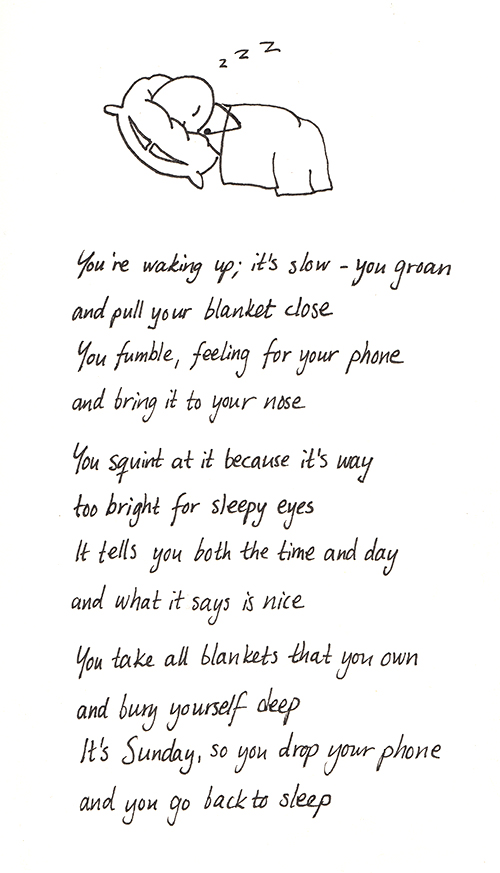 z z z
You're waking up; it's slow - you groan
and pull your blanket close
You fumble, feeling for your phone
and bring it to your nose
You squint at it because it's way
too bright for sleepy eyes
It tells you both the time and day
and what it says is nice
You take all blankets that you own
and bury yourself deep
It's Sunday, so you drop your phone
and you go back to sleep